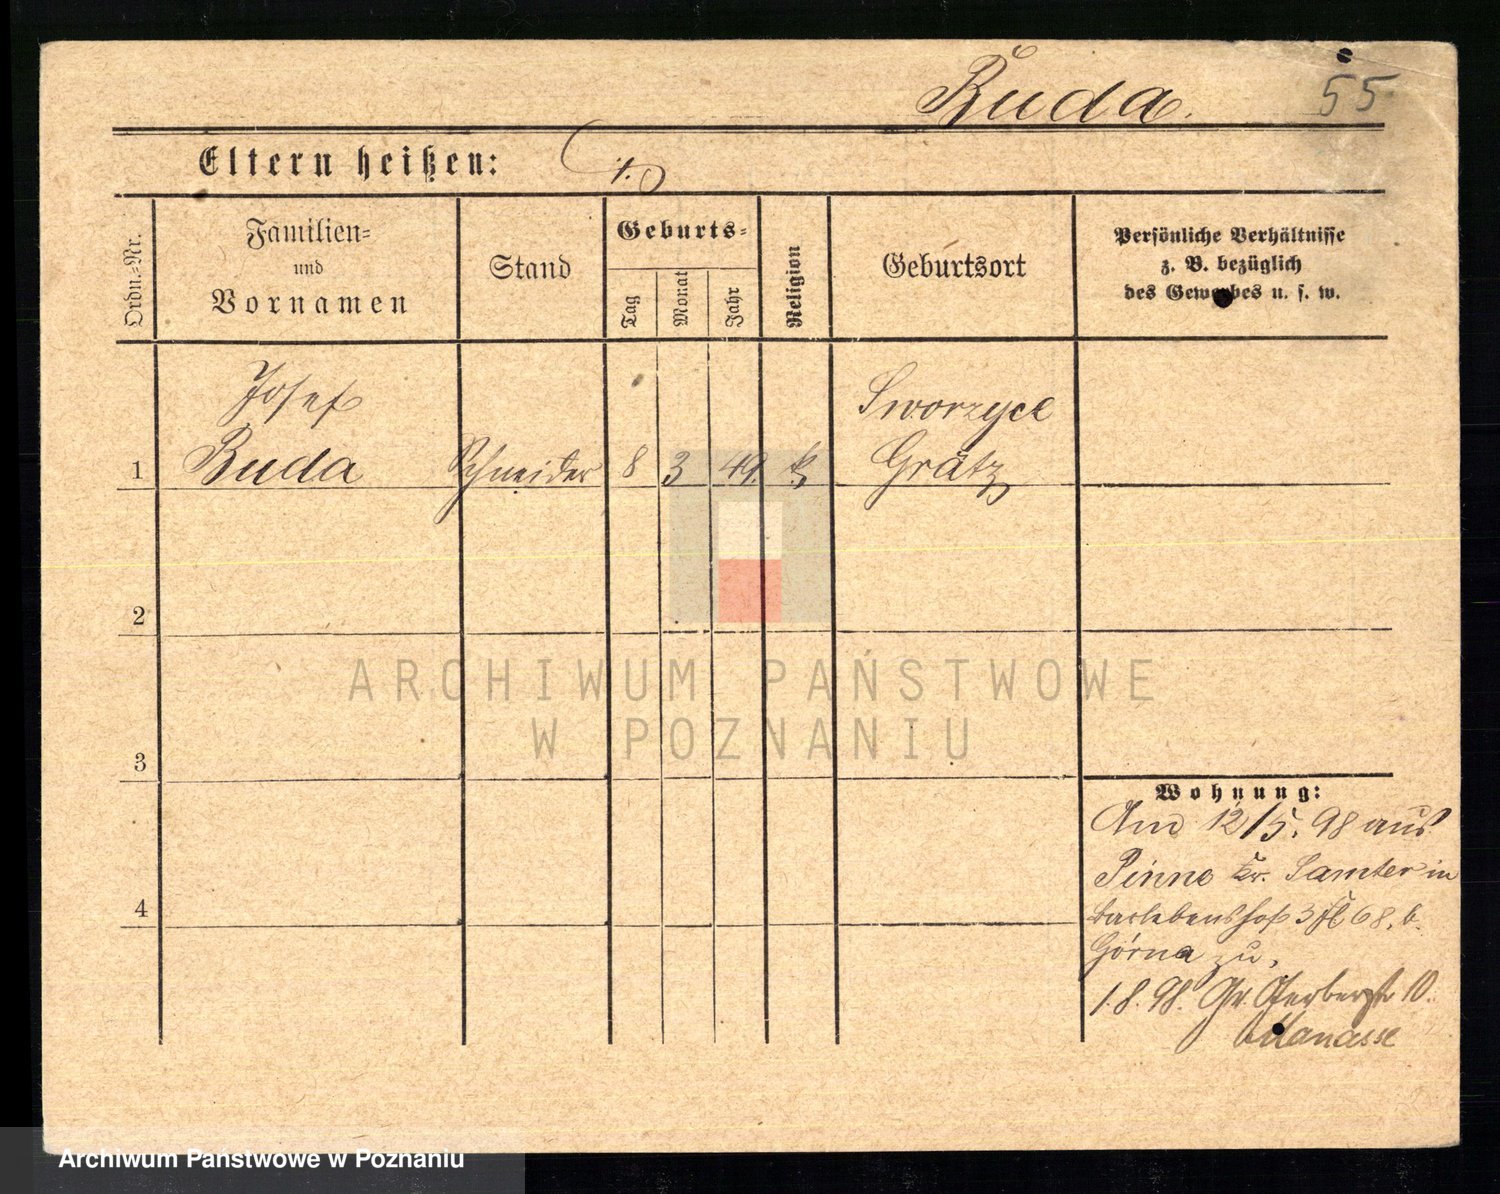 Buda.
55
Eltern heißen:
Ordn.-Nr.
Familien-
und
Vornamen
Stand
Geburts-
Tag
Monat
Jahr
Religion
Geburtsort
Persönliche Verhältnisse
z. B. bezüglich
des Gewerbes u. s. w.
Josef
Sworzyce
1 Buda Schneider 8 3 49. k. Grätz
2
3
4
Wohnung:
Am 12/5. 98 aus
Pinne Kr. Samter in
68. b.
Górna zu,
1.8.98. Gr. Gerberstr 10.
b/Manasse
ARCHIWUM PAŃSTWOWE
W POZNANIU
Archiwum Państwowe w Poznaniu